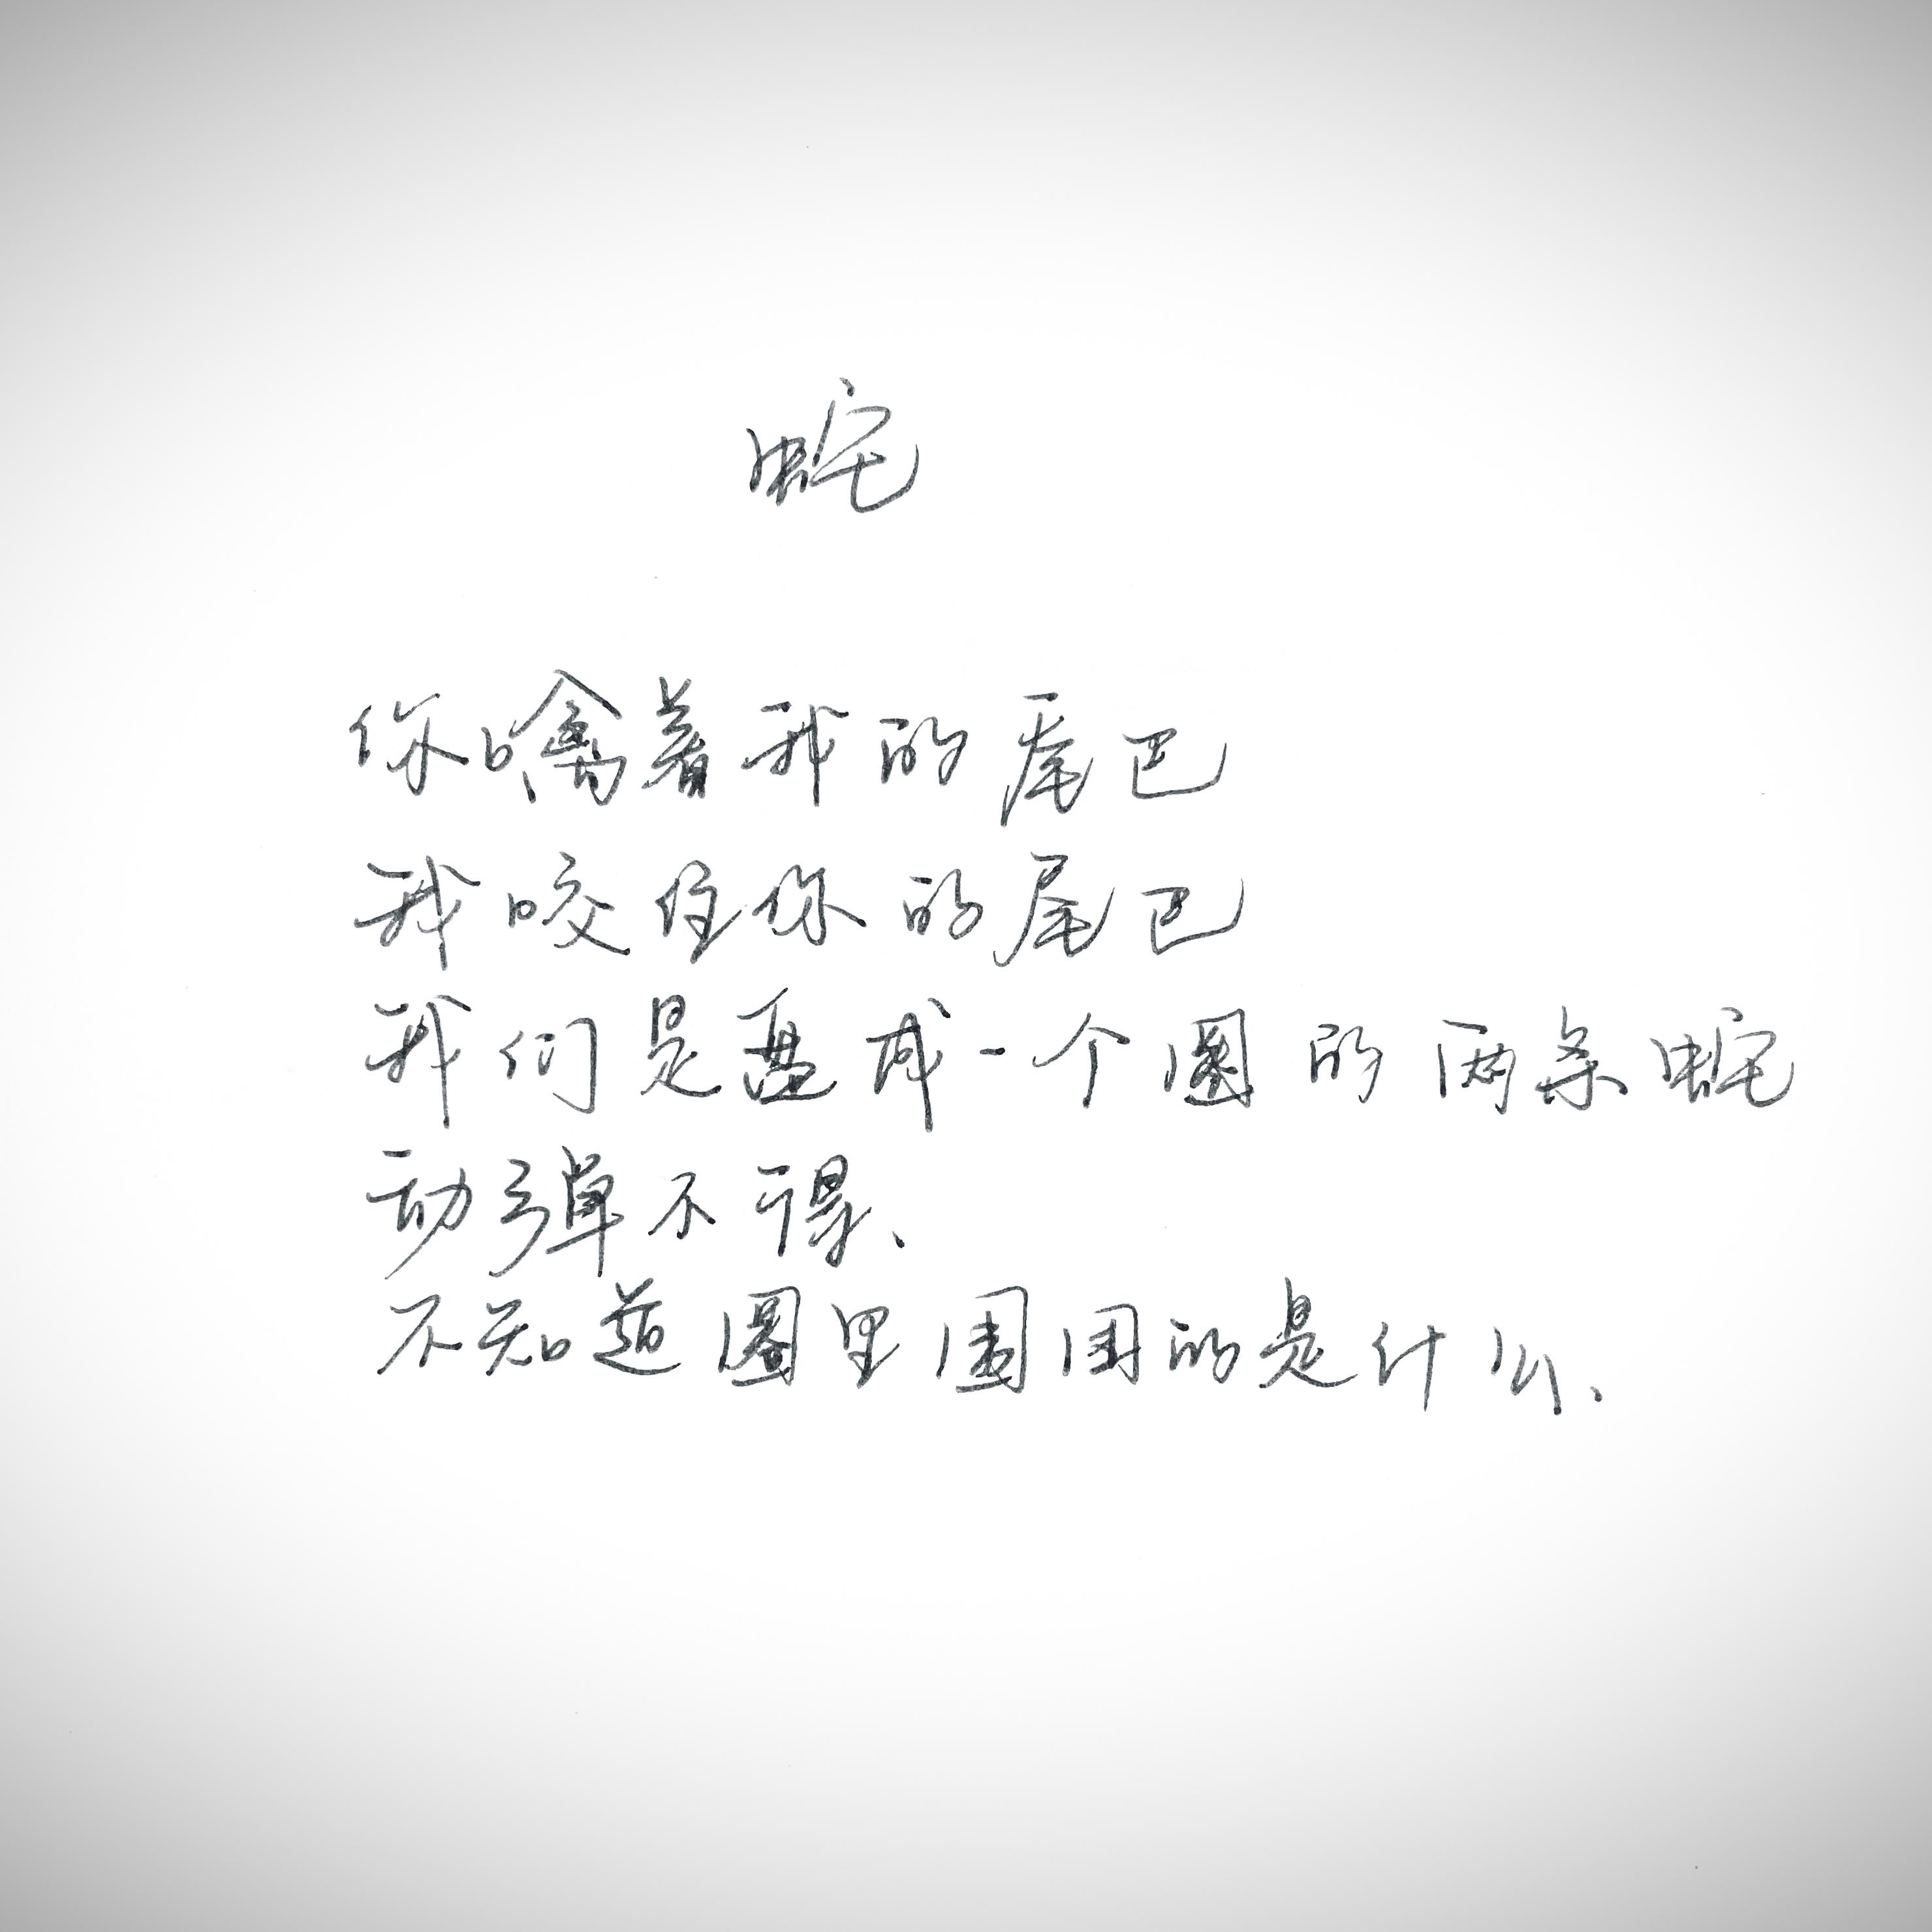 蛇
你噙着我的尾巴
我咬住你的尾巴
我们是盘成一个圈的两条蛇
动弹不得、
不知道圈里围困的是什么、